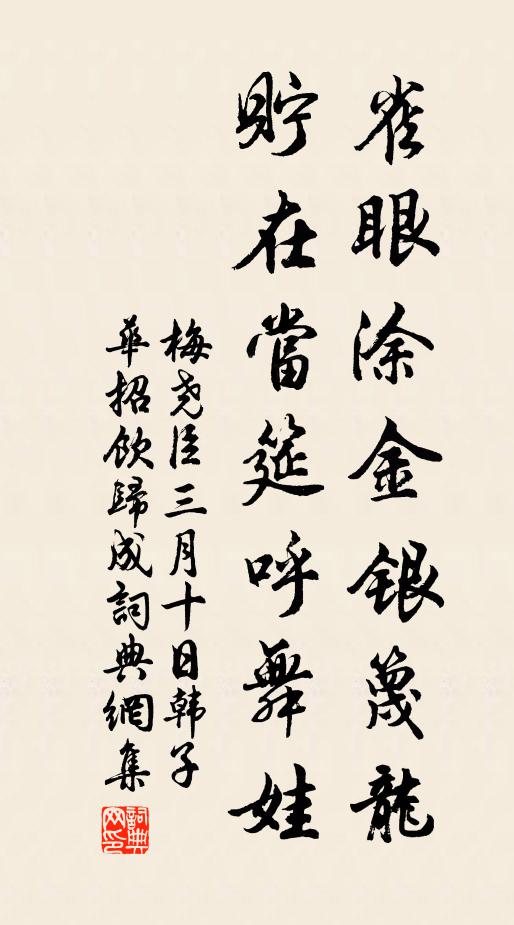 雀眼涂金銀篾龍
貯在當筵呼舞娃
梅尧臣三月十日韩子
華招飲歸成詞典網集
詞典网印